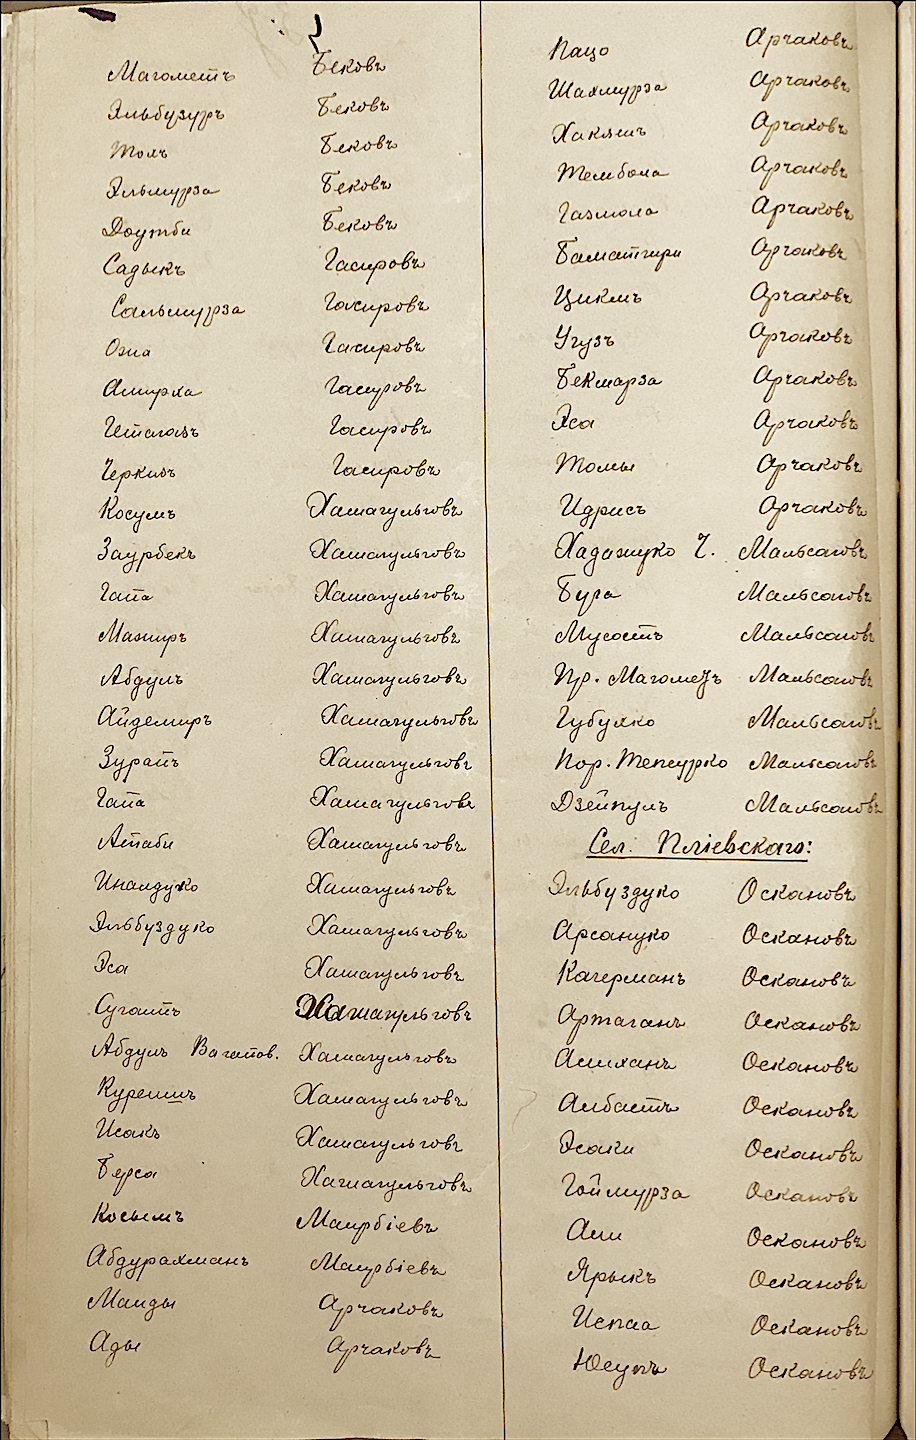 Магометъ Бековъ
Эльбузуръ Бековъ
Толъ Бековъ
Эльмурза Бековъ
Доутби Бековъ
Садыкъ Гасировъ
Сальмурза Гасировъ
Озиа Гасировъ
Амирха Гасировъ
Гасировъ
Черкизъ Гасировъ
Косумъ Хашагульговъ
Заурбекъ Хашагульговъ
Гапа Хашагульговъ
Мажиръ Хашагульговъ
Абдулъ Хашагульговъ
Айдемиръ Хашагульговъ
Зурапъ Хашагульговъ
Гапа Хашагульговъ
Атаби Хашагульговъ
Иналдуко Хашагульговъ
Эльбуздуко Хашагульговъ
Эса Хашагульговъ
Сугаипъ Хашагульговъ
Абдулъ Вагапов. Хашагульговъ
Курешъ Хашагульговъ
Исакъ Хашагульговъ
Берса Хашагульговъ
Косымъ Маирбіевъ
Абдурахманъ Маирбіевъ
Маиды Арчаковъ
Ады Арчаковъ
Пацо Арчаковъ
Шахмурза Арчаковъ
Хакяшъ Арчаковъ
Темболa Арчаковъ
Газмола Арчаковъ
Баматгири Арчаковъ
Цикмъ Арчаковъ
Угузъ Арчаковъ
Бекмарза Арчаковъ
Эса Арчаковъ
Томы Арчаковъ
Идрисъ Арчаковъ
Хадажуко Ч. Мальсаговъ
Бура Мальсаговъ
Мусостъ Мальсаговъ
Пр. Магометъ Мальсаговъ
Губулко Мальсаговъ
Пор. Тепсурко Мальсаговъ
Дзейпулъ Мальсаговъ
Сел. Пліевскаго:
Эльбуздуко Оскановъ
Арсануко Оскановъ
Кагерманъ Оскановъ
Артаганъ Оскановъ
Асиханъ Оскановъ
Албастъ Оскановъ
Эсаки Оскановъ
Гоймурза Оскановъ
Али Оскановъ
Ярыкъ Оскановъ
Испаа Оскановъ
Юсупъ Оскановъ